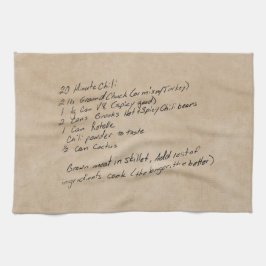 20 Minute Chili
2 lb Ground Chuck (or mix w/Turkey)
1 ½ Can V8 (spicy good)
2 Cans Brooks Hot & Spicy Chili beans
1 Can Rotelle
Chili powder to taste
½ can Cactus
Brown meat in skillet, Add rest of
ingredients cook (the longer, the better)